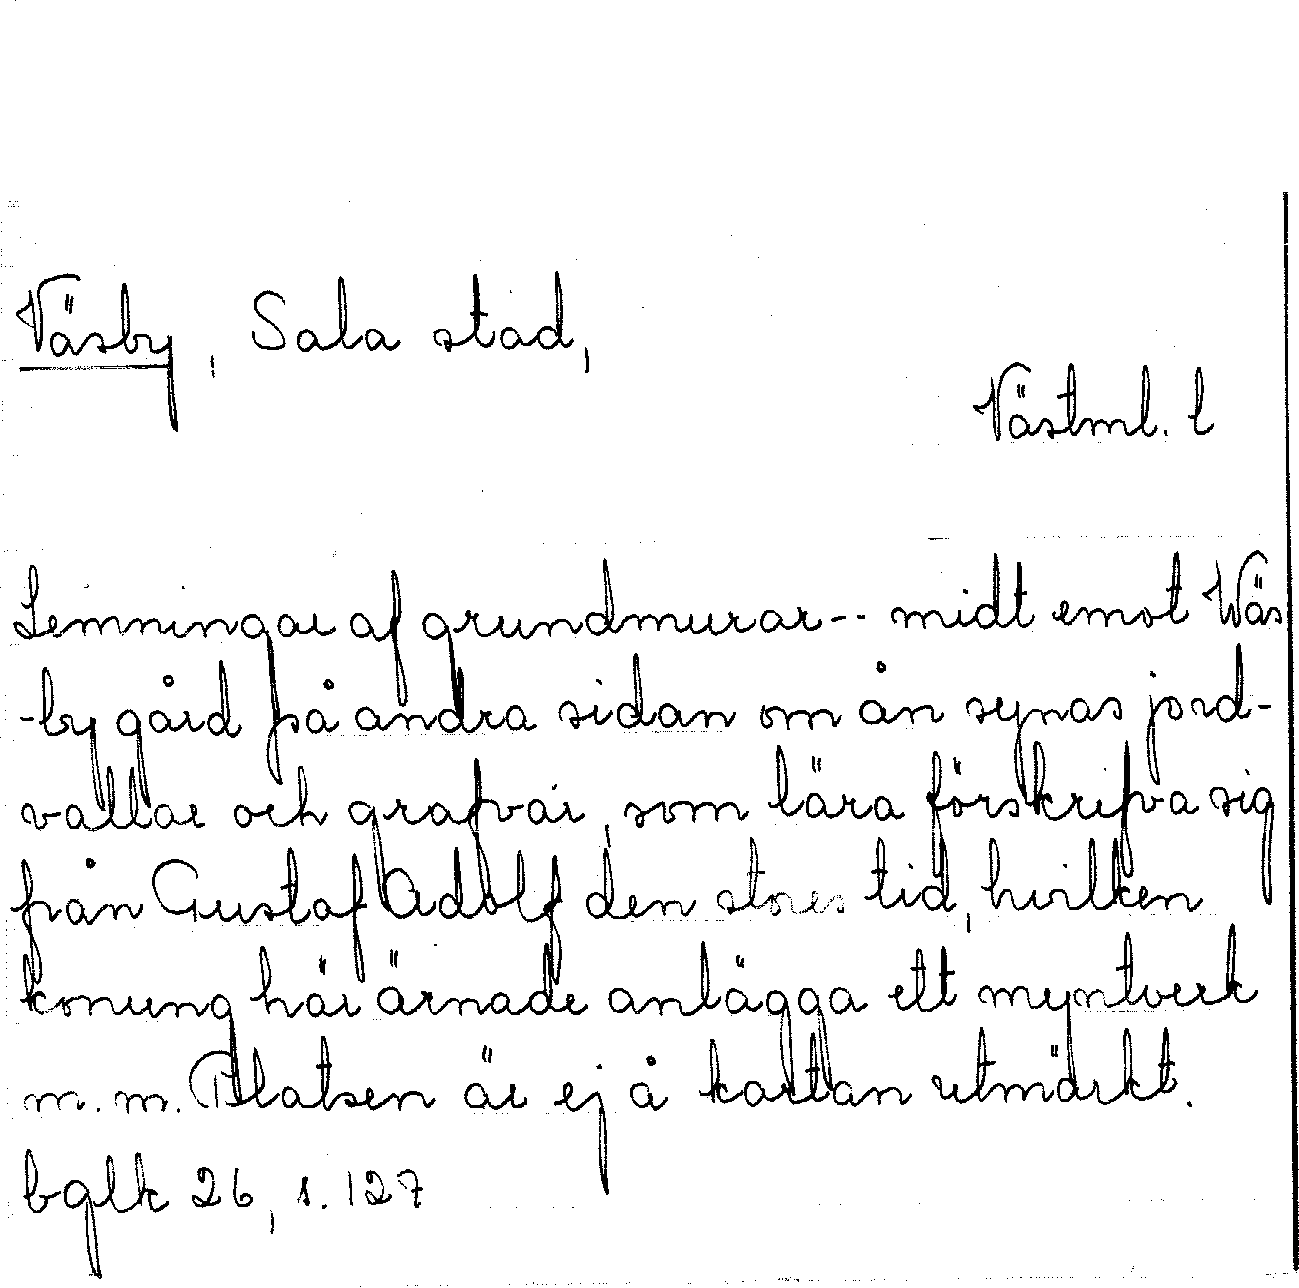 Väsby, Sala stad,
Västml. l
Lemningar af grundmurar-- midt emot Wäs
-by gård på andra sidan om ån synas jord-
vallar och grafvar, som lära förskrifva sig
från Gustaf Adolf den stores tid, hvilken
konung här ärnade anlägga ett myntverk
m. m. Platsen är ej å kartan utmärkt.
bglk 26, s. 127